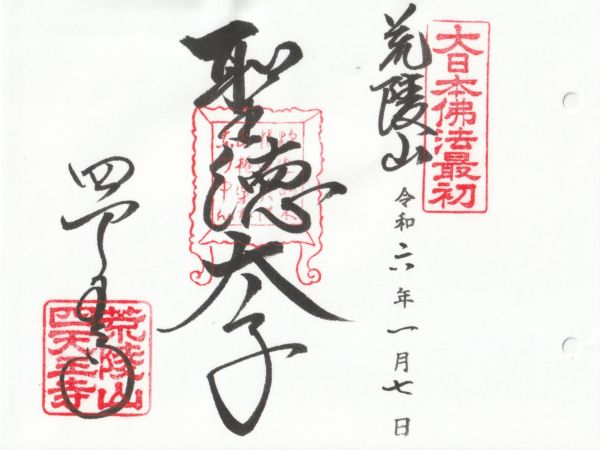 大日本佛法最初
荒陵山
令和六年一月七日
聖徳太子
四天王寺
荒陵山
四天王寺